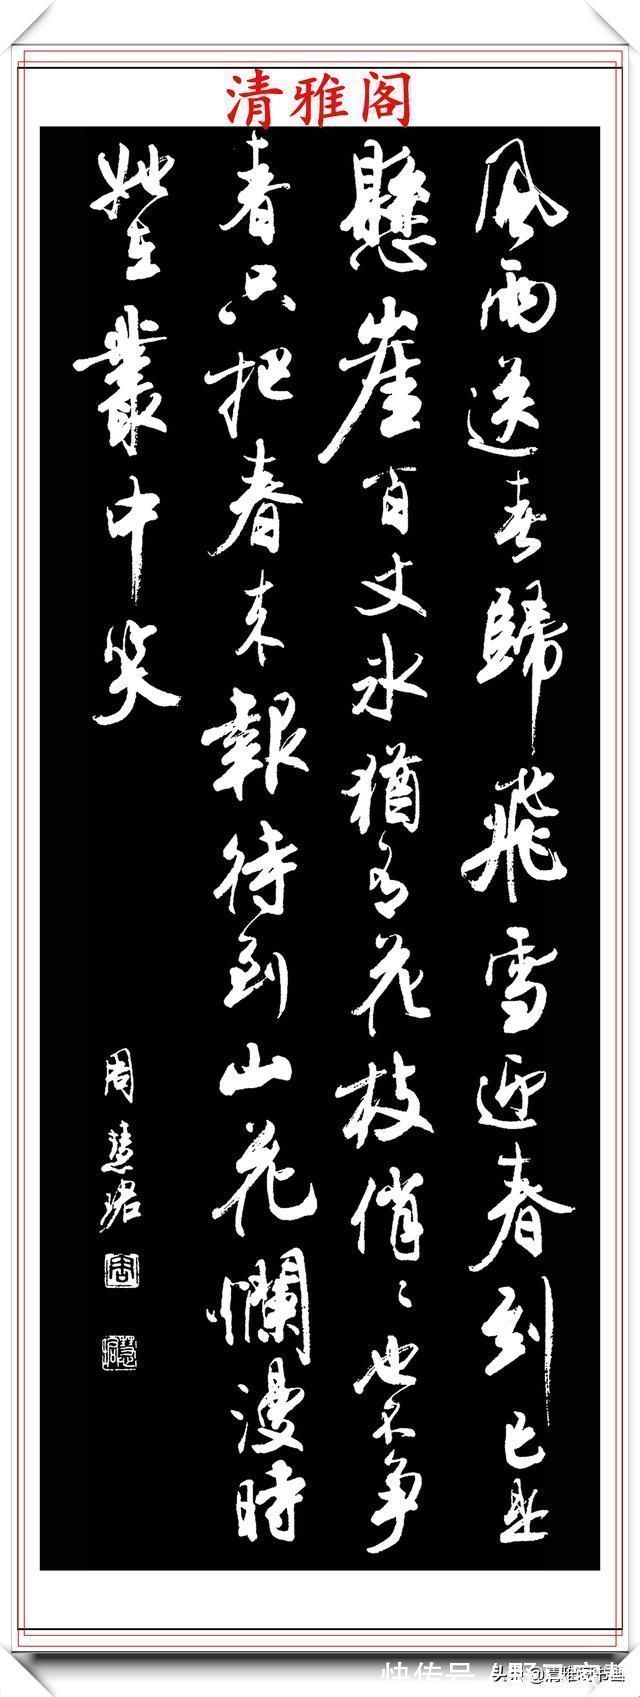 清雅阁
風雨送春歸飛雪迎春到已是
懸崖百丈冰猶有花枝俏〻也不争
春只把春来報待到山花爛漫時
她在叢中笑
周慧珺
周
慧珺
头条@清雅阁书画